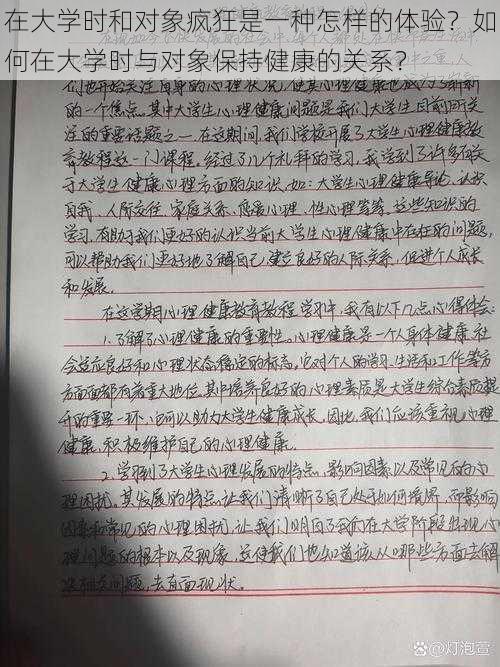 在大学时和对象疯狂是一种怎样的体验？如
何在大学时与对象保持健康的关系？
们也开始关注自身的心理状况，使其心理健康也成为了崭新
的一个焦点。其中大学生心理健康问题是我们大学生目前所关
注的重要话题之一。在这期间，我们学校开展了大学生心理健康教
育教程这一门课程，经过了几个礼拜的学习，我学到了许多有关
于大学生健康心理方面的知识，如：大学生心理健康导论、认识
自我、人际交往、家庭关系、恋爱心理、性心理等等。这些知识的
学习，有助于我们更好的认识当前大学生心理健康中存在的问题，
可以帮助我们更好地了解自己，建立良好的人际关系，促进个人成长
和发展。
在这学期心理健康教育教程学习中，我有以下几点心得体会：
1.了解了心理健康的重要性。心理健康是一个人身体健康、社
会适应良好和心理状态稳定的标志。它对个人的学习、生活和工作等方
方面面都有着重大地位。其中培养良好的心理素质是大学生综合素质提
升的重要一环，它可以助力大学生健康成长。因此，我们应该重视心理
健康，积极维护自己的心理健康。
2.学习到了大学生心理发展的特点、影响因素以及常见的心
理困扰。其发展的特点，让我们清晰了自己处于如何境界，而影响
因素和常见的心理困扰，让我们明白了我们在大学阶段出现心
理问题的根本以及现象，这使我们也知道该从哪些方面去解
决相关问题，去直面现状。
百家号/灯泡萱